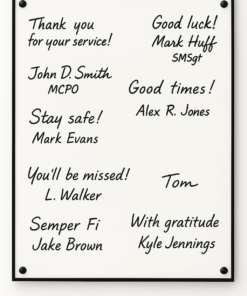 Thank you
for your service!
John D. Smith
MCPO
Stay safe!
Mark Evans
You'll be missed!
L. Walker
Semper Fi
Jake Brown
Good luck!
Mark Huff
SMSgt
Good times!
Alex R. Jones
Tom
With gratitude
Kyle Jennings